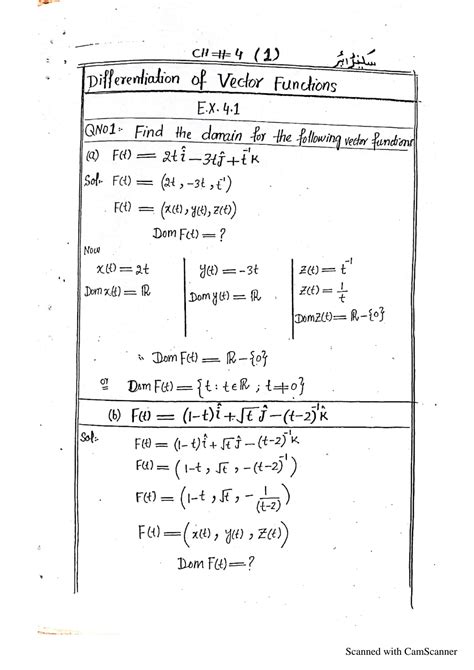 CH # 4 (1) سیکنڈائیر
Differentiation of Vector Functions
EX. 4.1
QNO1:- Find the domain for the following vector functions
(a) F(t) = 2t î - 3t ĵ + t⁻¹ k
Sol:- F(t) = (2t, -3t, t⁻¹)
F(t) = (x(t), y(t), z(t))
Dom F(t) = ?
Now
x(t) = 2t | y(t) = -3t | z(t) = t⁻¹
Dom x(t) = ℝ | Dom y(t) = ℝ | z(t) = 1/t
Dom z(t) = ℝ - {0}
∴ Dom F(t) = ℝ - {0}
or Dom F(t) = {t : t ∈ ℝ ; t ≠ 0}
(b) F(t) = (1-t) î + √t ĵ - (t-2)⁻¹ k̂
Sol:-
F(t) = (1-t) î + √t ĵ - (t-2)⁻¹ k
F(t) = (1-t, √t, -(t-2)⁻¹)
F(t) = (1-t, √t, - 1/(t-2))
F(t) = (x(t), y(t), z(t))
Dom F(t) = ?
Scanned with CamScanner